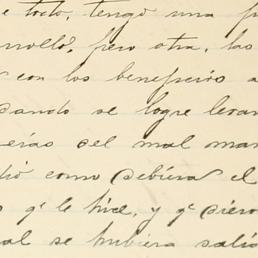 e todo, tengo una
rrolló, pero otra, las
con los beneficios a
cuando se logre levan
erias del mal man
dió como debiera el
s qe le hice, y qe
al se hubiera salí